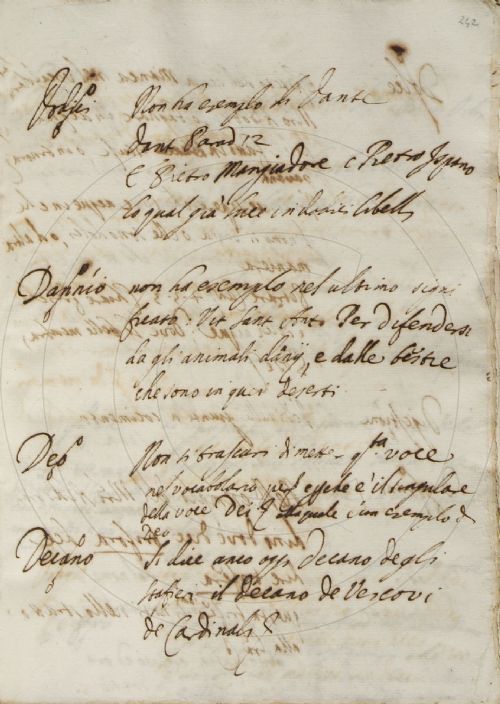 242
Dodici Non ha esemplo di Dante
Dant Parad 12
E Pietro Mangiadore e Pietro Ispano
Lo qual giù luce in dodici libelli
non ha esemplo nel ultimo signi
ficato. Vit Sant Per difendersi
da gli animali e dalle bestie
che sono in quei deserti
Non si trascuri di metter qsta voce
nel vocabolario essere è il singulare
della voce Dei un esemplo di
Deo
Decano Si dice anco oggi Decano degli
il decano de Vescovi
de Cardinali